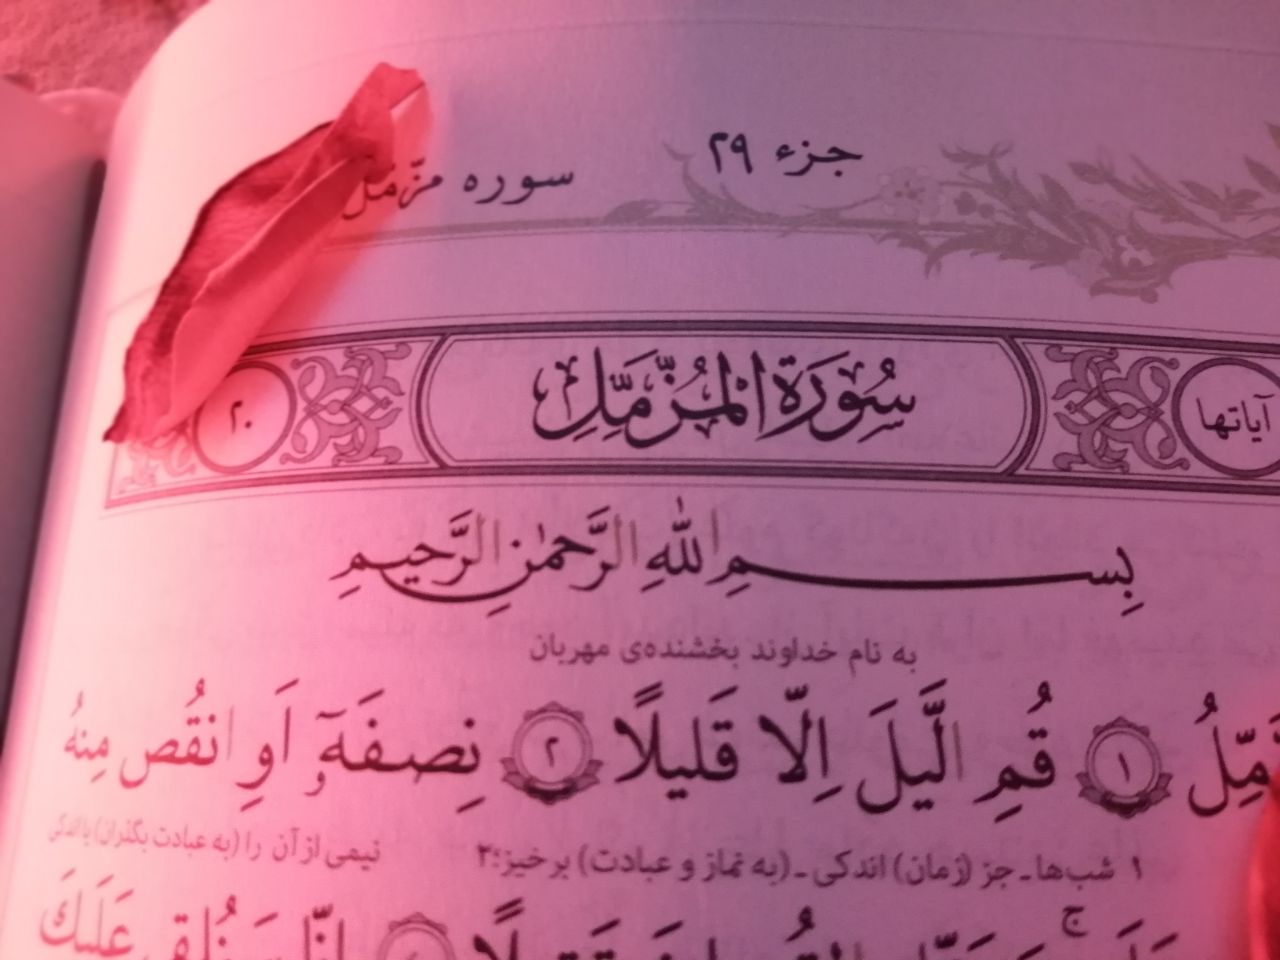 جزء ۲۹
سوره مزّمّل
آیاتها
سُورَةُ المُزَّمِّلِ
۲۰
بِسمِ اللّٰهِ الرَّحمٰنِ الرَّحیمِ
به نام خداوند بخشنده‌ی مهربان
۱ قُمِ الَّیلَ اِلّا قَلیلًا ۲ نِصفَهٗٓ اَوِ انقُص مِنهُ
۱ شب‌ها ـ جز (زمان) اندکی ـ (به نماز و عبادت) برخیز؛ ۲ نیمی از آن را (به عبادت بگذران) یا اندکی
عَلَیكَ